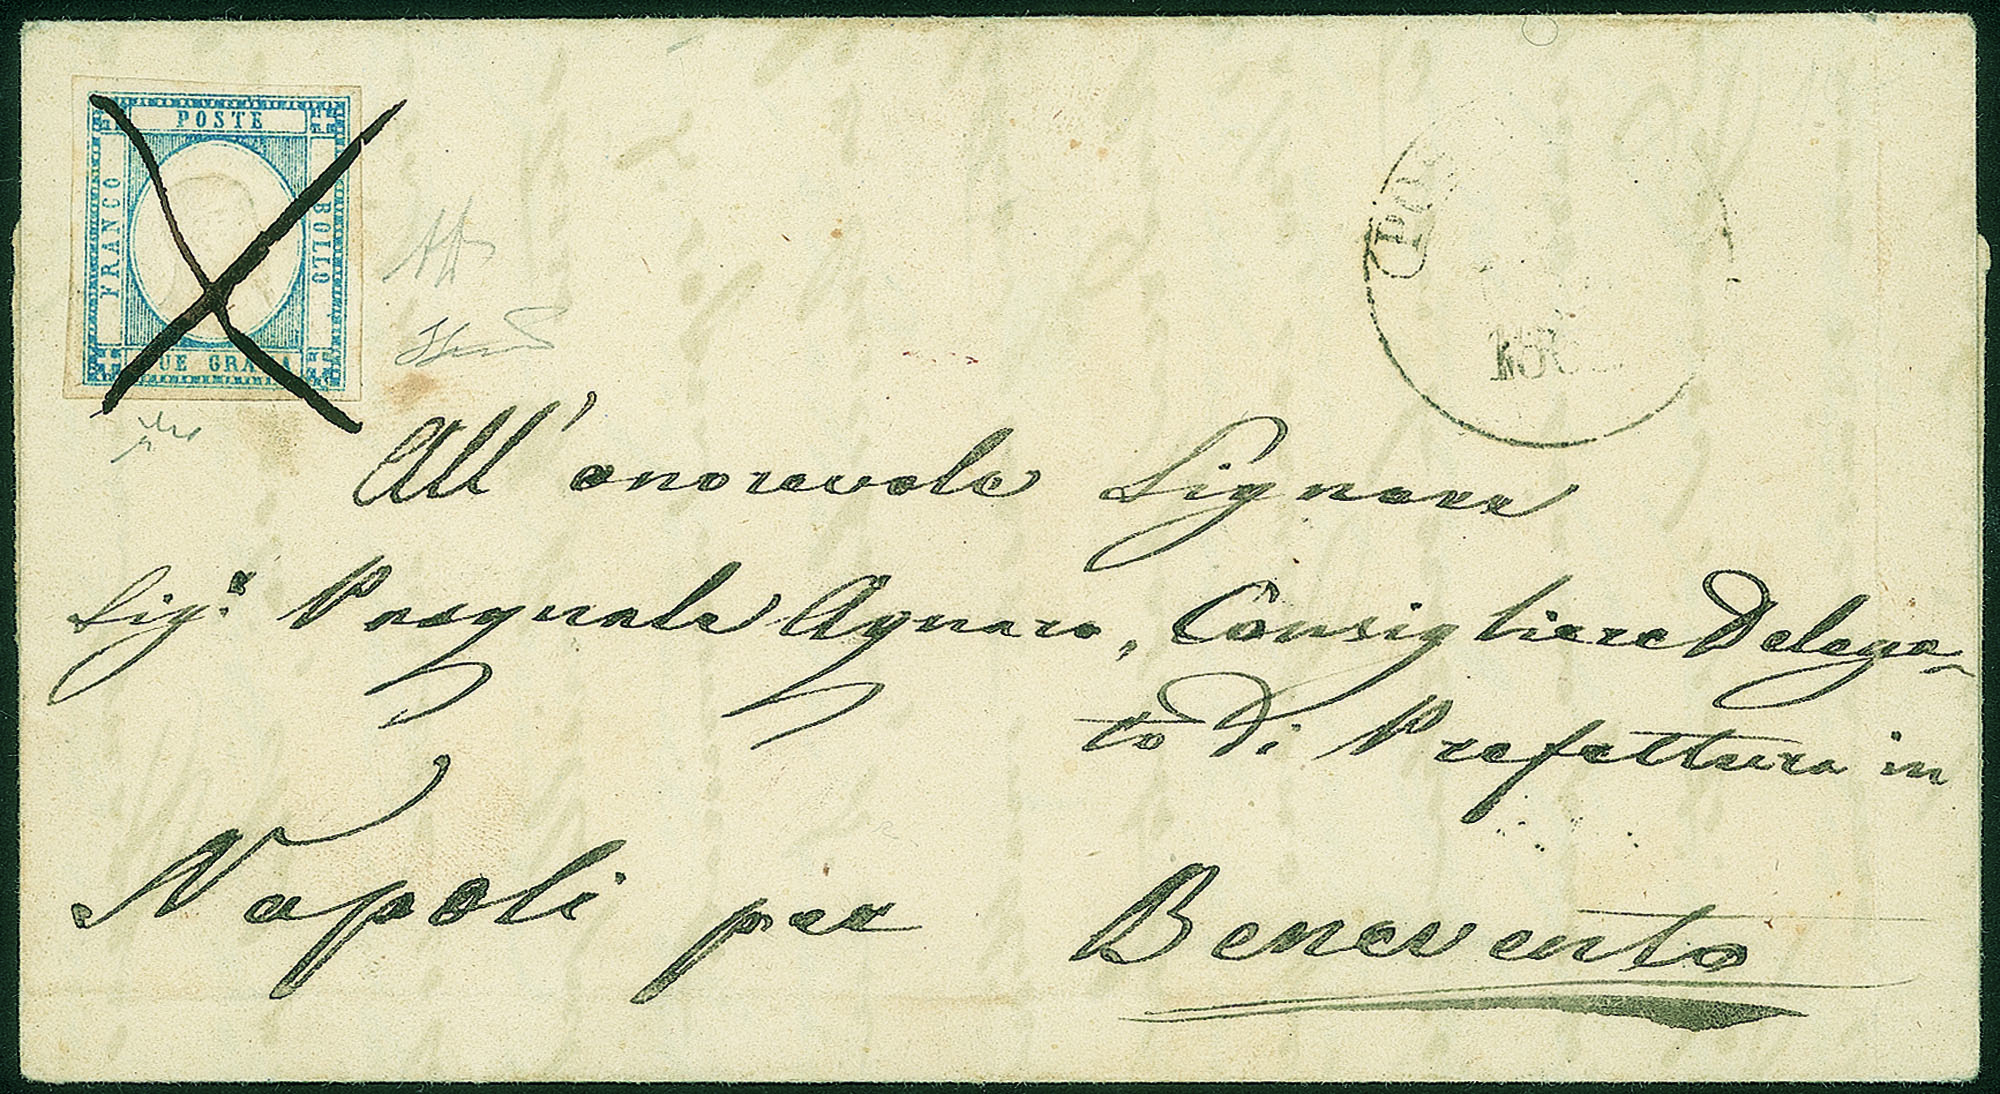 POSTE
FRANCO
BOLLO
UE GRANA
All' onorevole Signore
Sig.r Pasquale Agnaro, Consigliere Delega-
to di Prefettura in
Napoli per Benevento